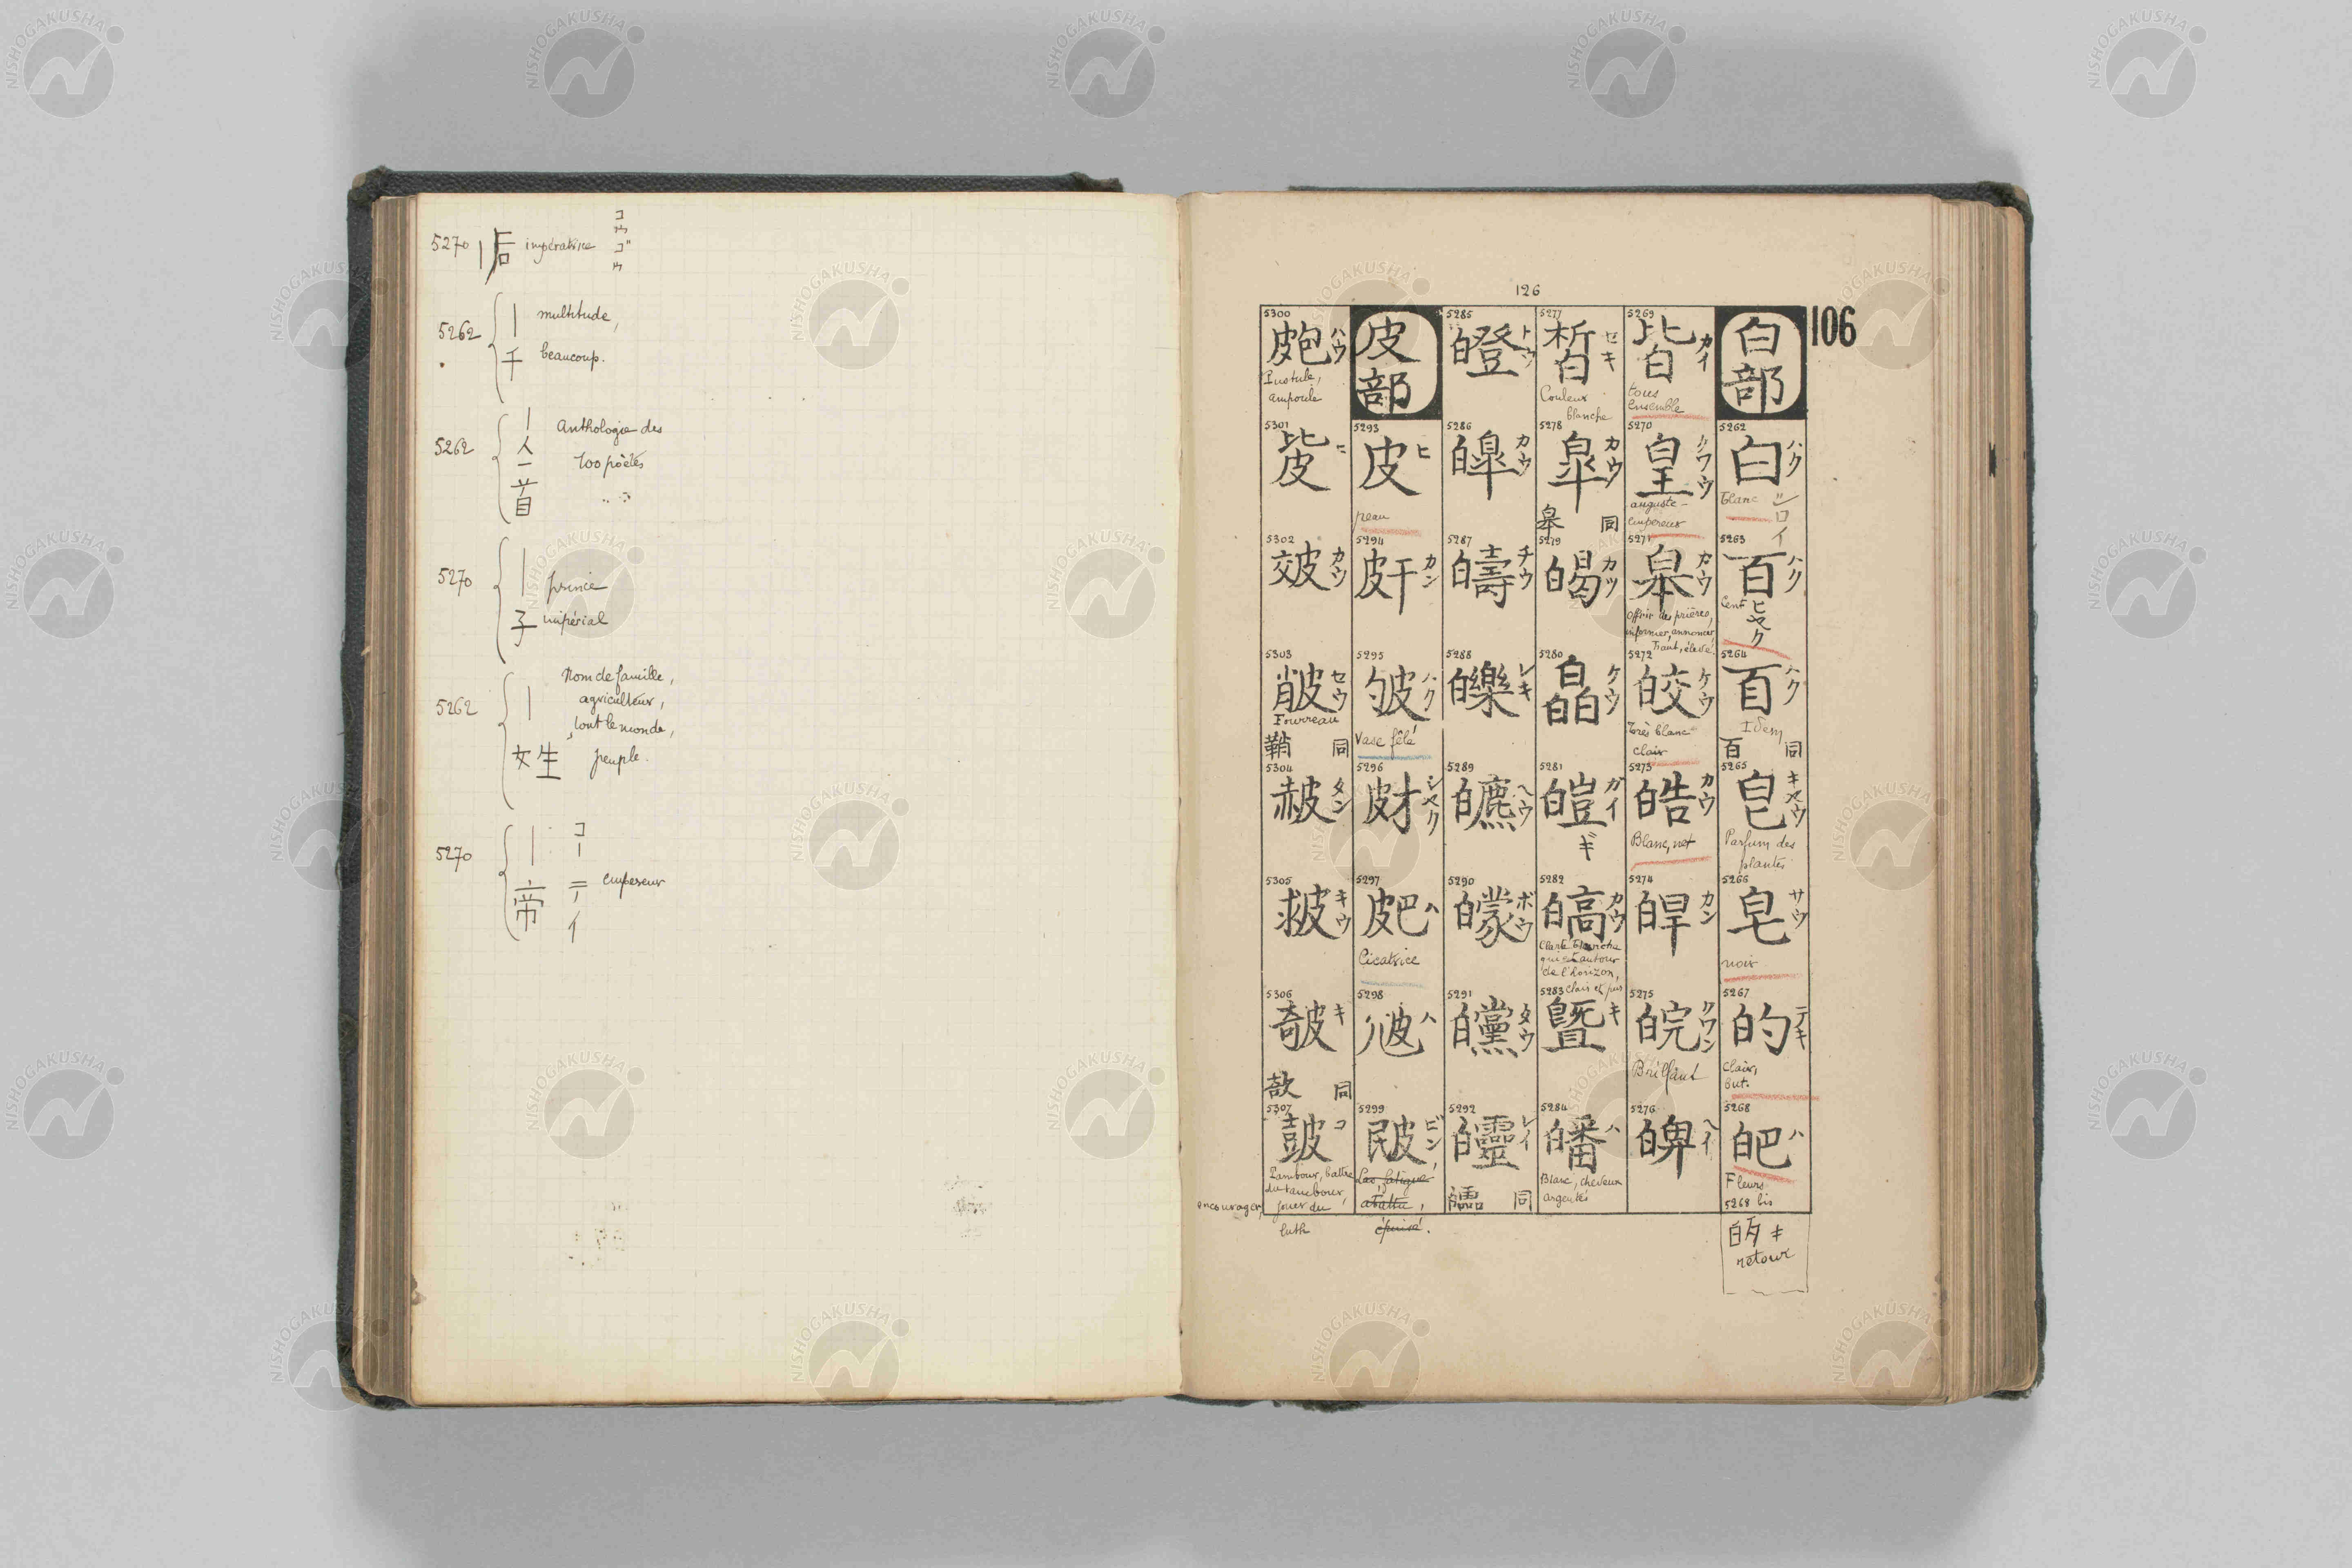 5270 | 后 impératrice コウゴウ
5262 | 千 multitude,
beaucoup.
5262 | 人一首 Anthologie des
100 poètes
5270 | 子 prince
impérial
5262 | 女生 Nom de famille,
agriculteur,
tout le monde,
peuple.
5270 | 帝 コーテイ empereur
126
106
白部
5262 白 ハク
blanc シロイ
5263 百 ハク
Cent ヒャク
5264 百 ハク
Idem
百 同
5265 皀 キヤウ
Parfum des
plantes
5266 皂 サウ
noir
5267 的 テキ
clair,
but.
5268 皅 ハ
Fleurs
5268 bis
キ
retour
5269 皆 カイ
tous
ensemble
5270 皇 クワウ
auguste -
empereur
5271 皋 カウ
Offrir des prières,
informer, annoncer,
haut, élevé.
5272 皎 ケウ
Très blanc
clair
5273 皓 カウ
Blanc, net
5274 皔 カン
5275 皖 クワン
Brillant
5276 皍 ヘイ
5277 皙 セキ
Couleur
blanche
5278 皐 カウ
皋 同
5279 カツ
5280 皛 ケウ
5281 皚 ガイ
ギ
5282 皜 カウ
Clarté blanche
qui est autour
de l'horizon,
clair et pur
5283 曁 キ
5284 皤 ハ
Blanc, cheveux
argentés
5285 トウ
5286 皞 カウ
5287 チウ
5288 皪 レキ
5289 皫 ヘウ
5290 ボウ
5291 タウ
5292 レイ
同
皮部
5293 皮 ヒ
peau
5294 皯 カン
5295 ハク
Vase fêlé
5296 シャク
5297 皅 ハ
Cicatrice
5298 ハ
5299 ビン
Las, fatigué
abattu,
épuisé.
5300 皰 ハウ
Pustule,
ampoule
5301
5302 カウ
5303 セウ
Fourreau
鞘 同
5304 タン
5305 キウ
5306 キ
同
5307 皷 コ
Tambour, battre
du tambour,
encourager, jouer du
luth